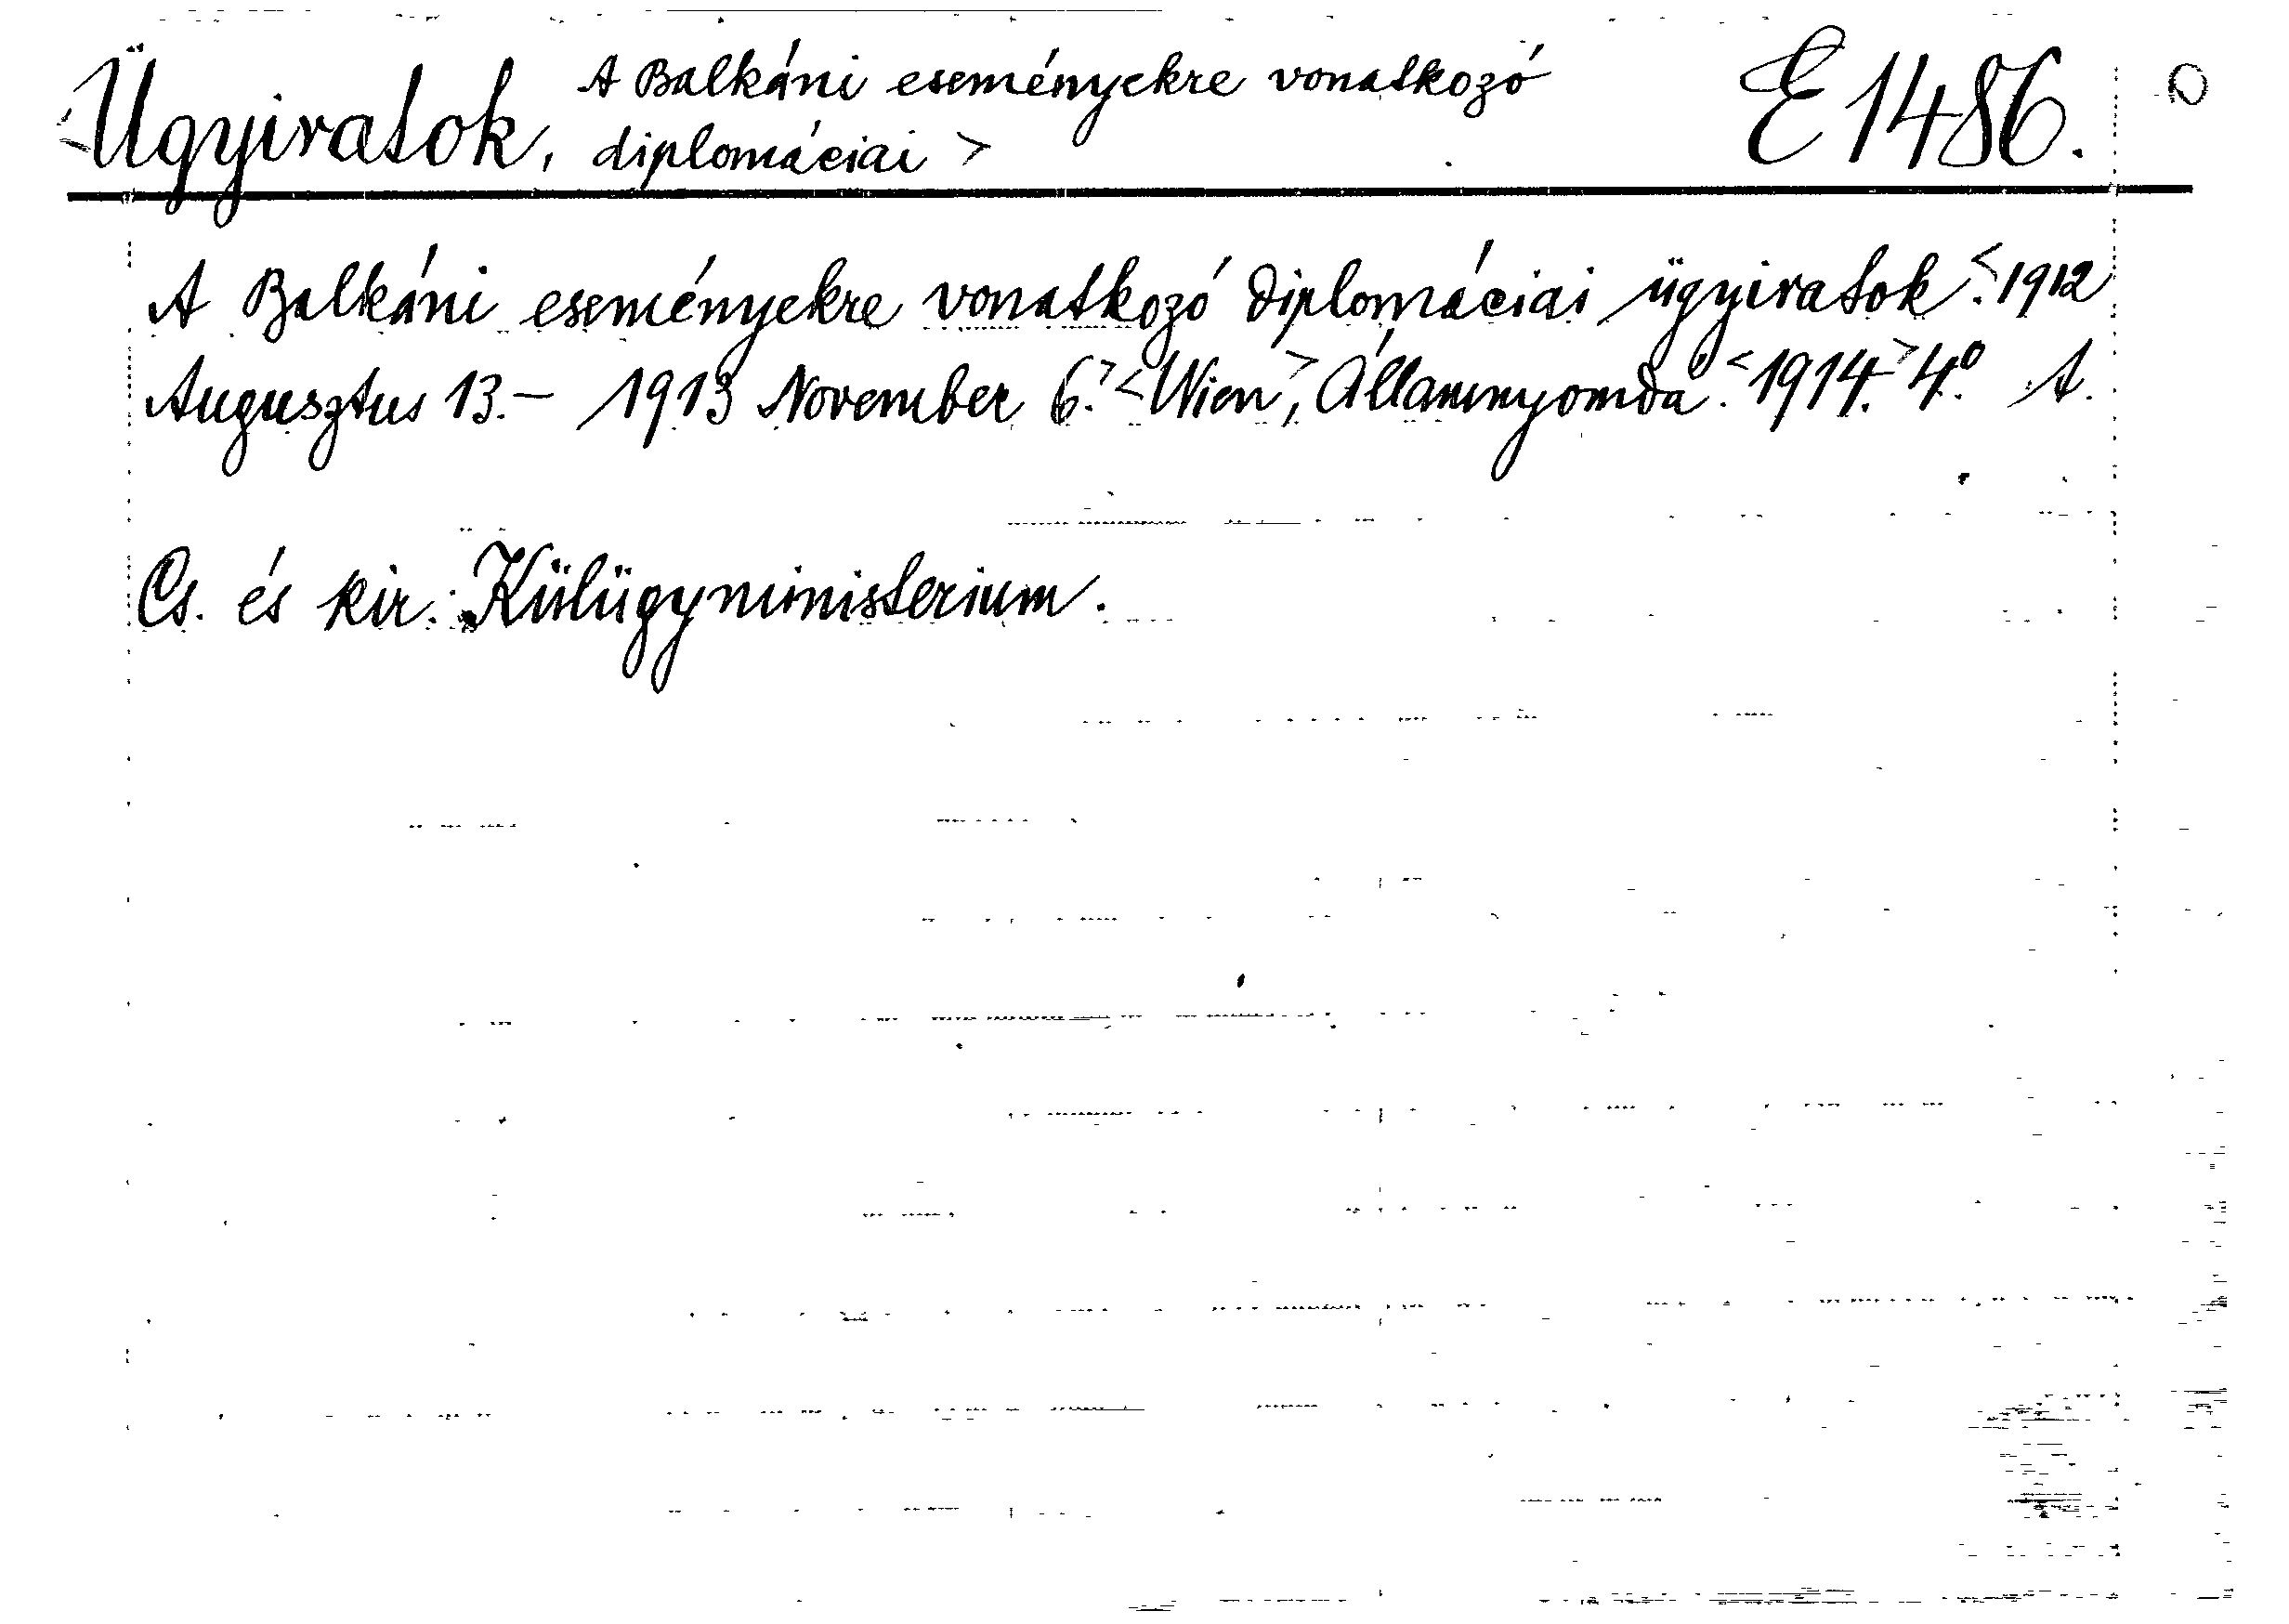 Ügyiratok, A Balkáni eseményekre vonatkozó E 1486.
diplomáciai >
A Balkáni eseményekre vonatkozó diplomáciai ügyiratok. <1912
Augusztus 13.- 1913 November 6.> <Wien>, Államnyomda. <1914.> 4° A.
Cs. és kir. Külügyministerium.